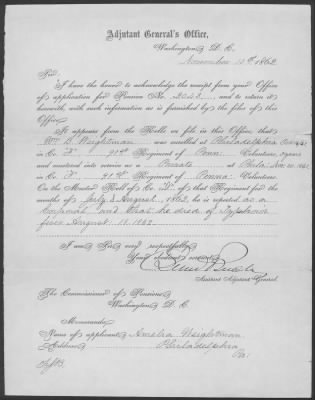 Adjutant General's Office,
Washington, D. C.
November 1862
Sir:
I have the honor to acknowledge the receipt from your Office
of application for Pension No. and to return it
herewith, with such information as is furnished by the files of this
Office.
It appears from the Rolls on file in this Office, that
Wm B. Weightman was enrolled at Philadelphia
in Co. 91st Regiment of Penn Volunteers,
and mustered into service as a Private at Phila:
in Co. 91st Regiment of Penna Volunteers.
On the Muster Roll of Co. of that Regiment for the
months of July & August, 1862, he is reported as a
Corporal and that he died of Typhoid
fever August 1862.
I am, Sir, very respectfully,
Your obedient servant,
Assistant Adjutant General.
The Commissioner of Pensions,
Washington, D. C.
Memoranda:
Name of applicant, Amelia Weightman
Address, Philadelphia
Pa.